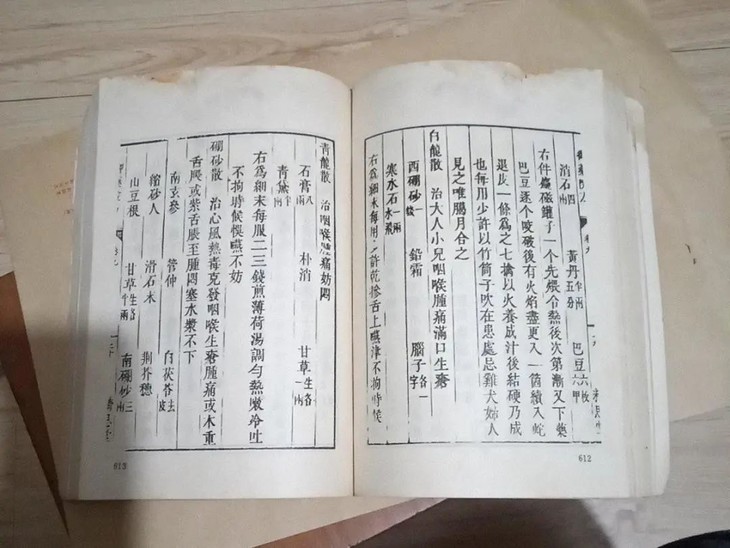 消石四兩 黃丹半兩五分 巴豆六枚甲
右件臺磁鑵子一个先煨令熱後次第漸又下藥
巴豆逐个咬破後有火焰盡更入一箇續入蛇
退皮一條為之七擒以火養成汁後結硬乃成
也每用少許以竹筒子吹在患處忌雞犬婦人
見之唯臘月合之
白龍散 治大人小兒咽喉腫痛滿口生瘡
西硼砂一錢 鉛霜 腦子各一字
寒水石一兩
右為細末每用少許乾摻舌上嚥津不拘時候
612
青龍散 治咽喉腫痛妨悶
石膏八兩 朴消 甘草生各一兩
青黛半兩
右為細末每服二三錢煎薄荷湯調勻熱嗽冷吐
不拘時候悞嚥不妨
硼砂散 治心風熱毒克發咽喉生瘡腫痛或木重
舌脹或紫舌脹至腫悶塞水漿不下
南玄參 管仲 白茯苓去皮
縮砂人 滑石末 荆芥穗
山豆根 甘草生各半兩 南硼砂三兩
613